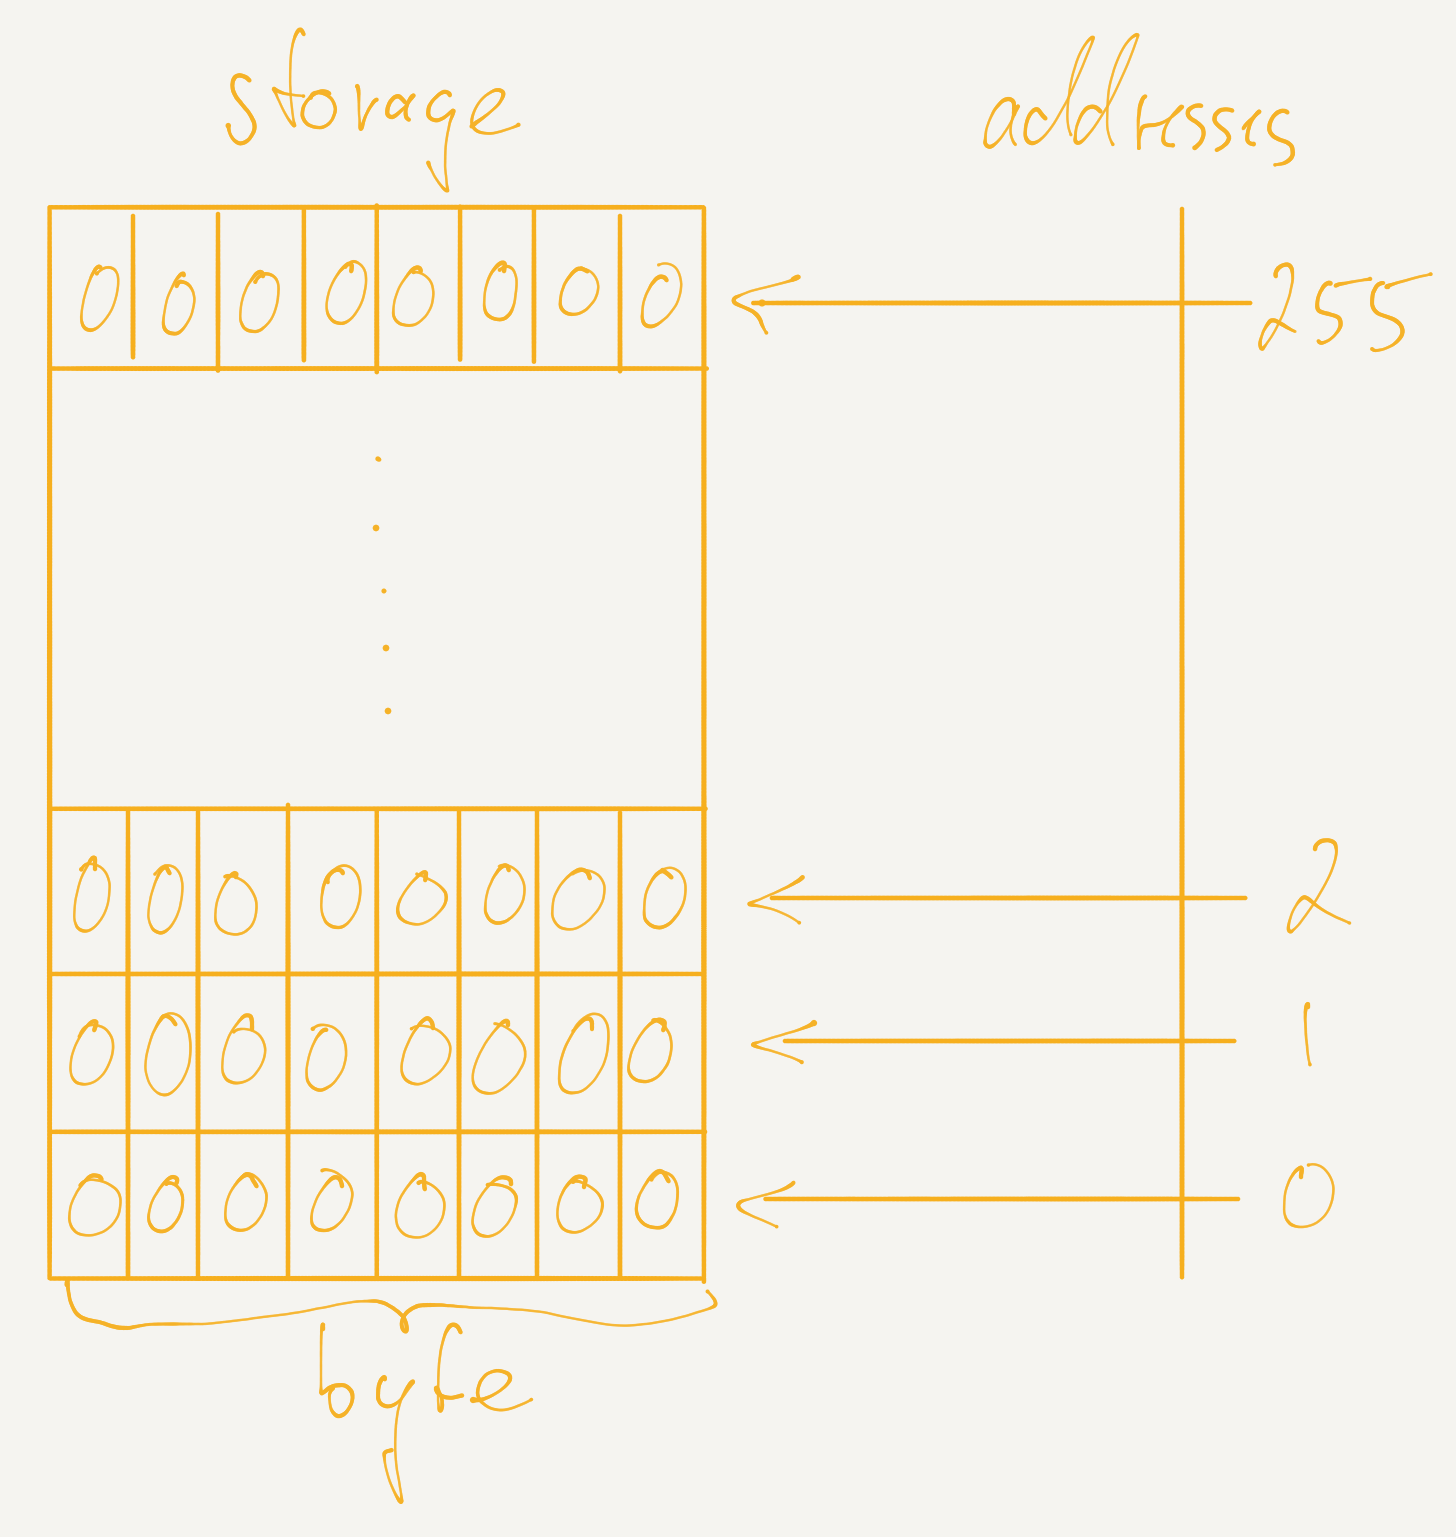 storage addresses
0 0 0 0 0 0 0 0 255
0 0 0 0 0 0 0 0 2
0 0 0 0 0 0 0 0 1
0 0 0 0 0 0 0 0 0
byte